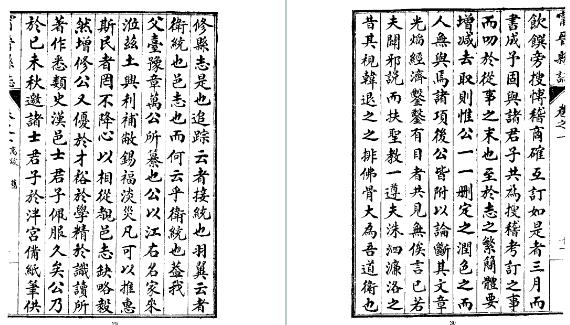 修縣志是也追踪云者接統也羽翼云者
衛統也邑志也而何云乎衛統也蓋我
父臺豫章萬公所纂也公以江右名家來
涖茲土興利補敝錫福淡災凡可以推惠
斯民者罔不降心以相從覩邑志缺略毅
然增修公又優於才裕於學精於識讀所
著作悉類史漢邑士君子佩服久矣公乃
於己未秋邀諸士君子於泮宮備紙筆供
寧晉縣志
飲饌旁搜博稽商確互訂如是者三月而
書成予固與諸君子共為搜稽考訂之事
而叨於從事之末也至於志之繁簡體要
增減去取則惟公一一刪定之潤色之而
人無與焉諸項後公皆附以論斷其文章
光焰經濟鑿鑿有目者共見無俟言已若
夫闢邪說而扶聖教一遵夫洙泗濂洛之
昔其視韓退之之排佛骨大為吾道衛也
寧晉縣志 卷之一